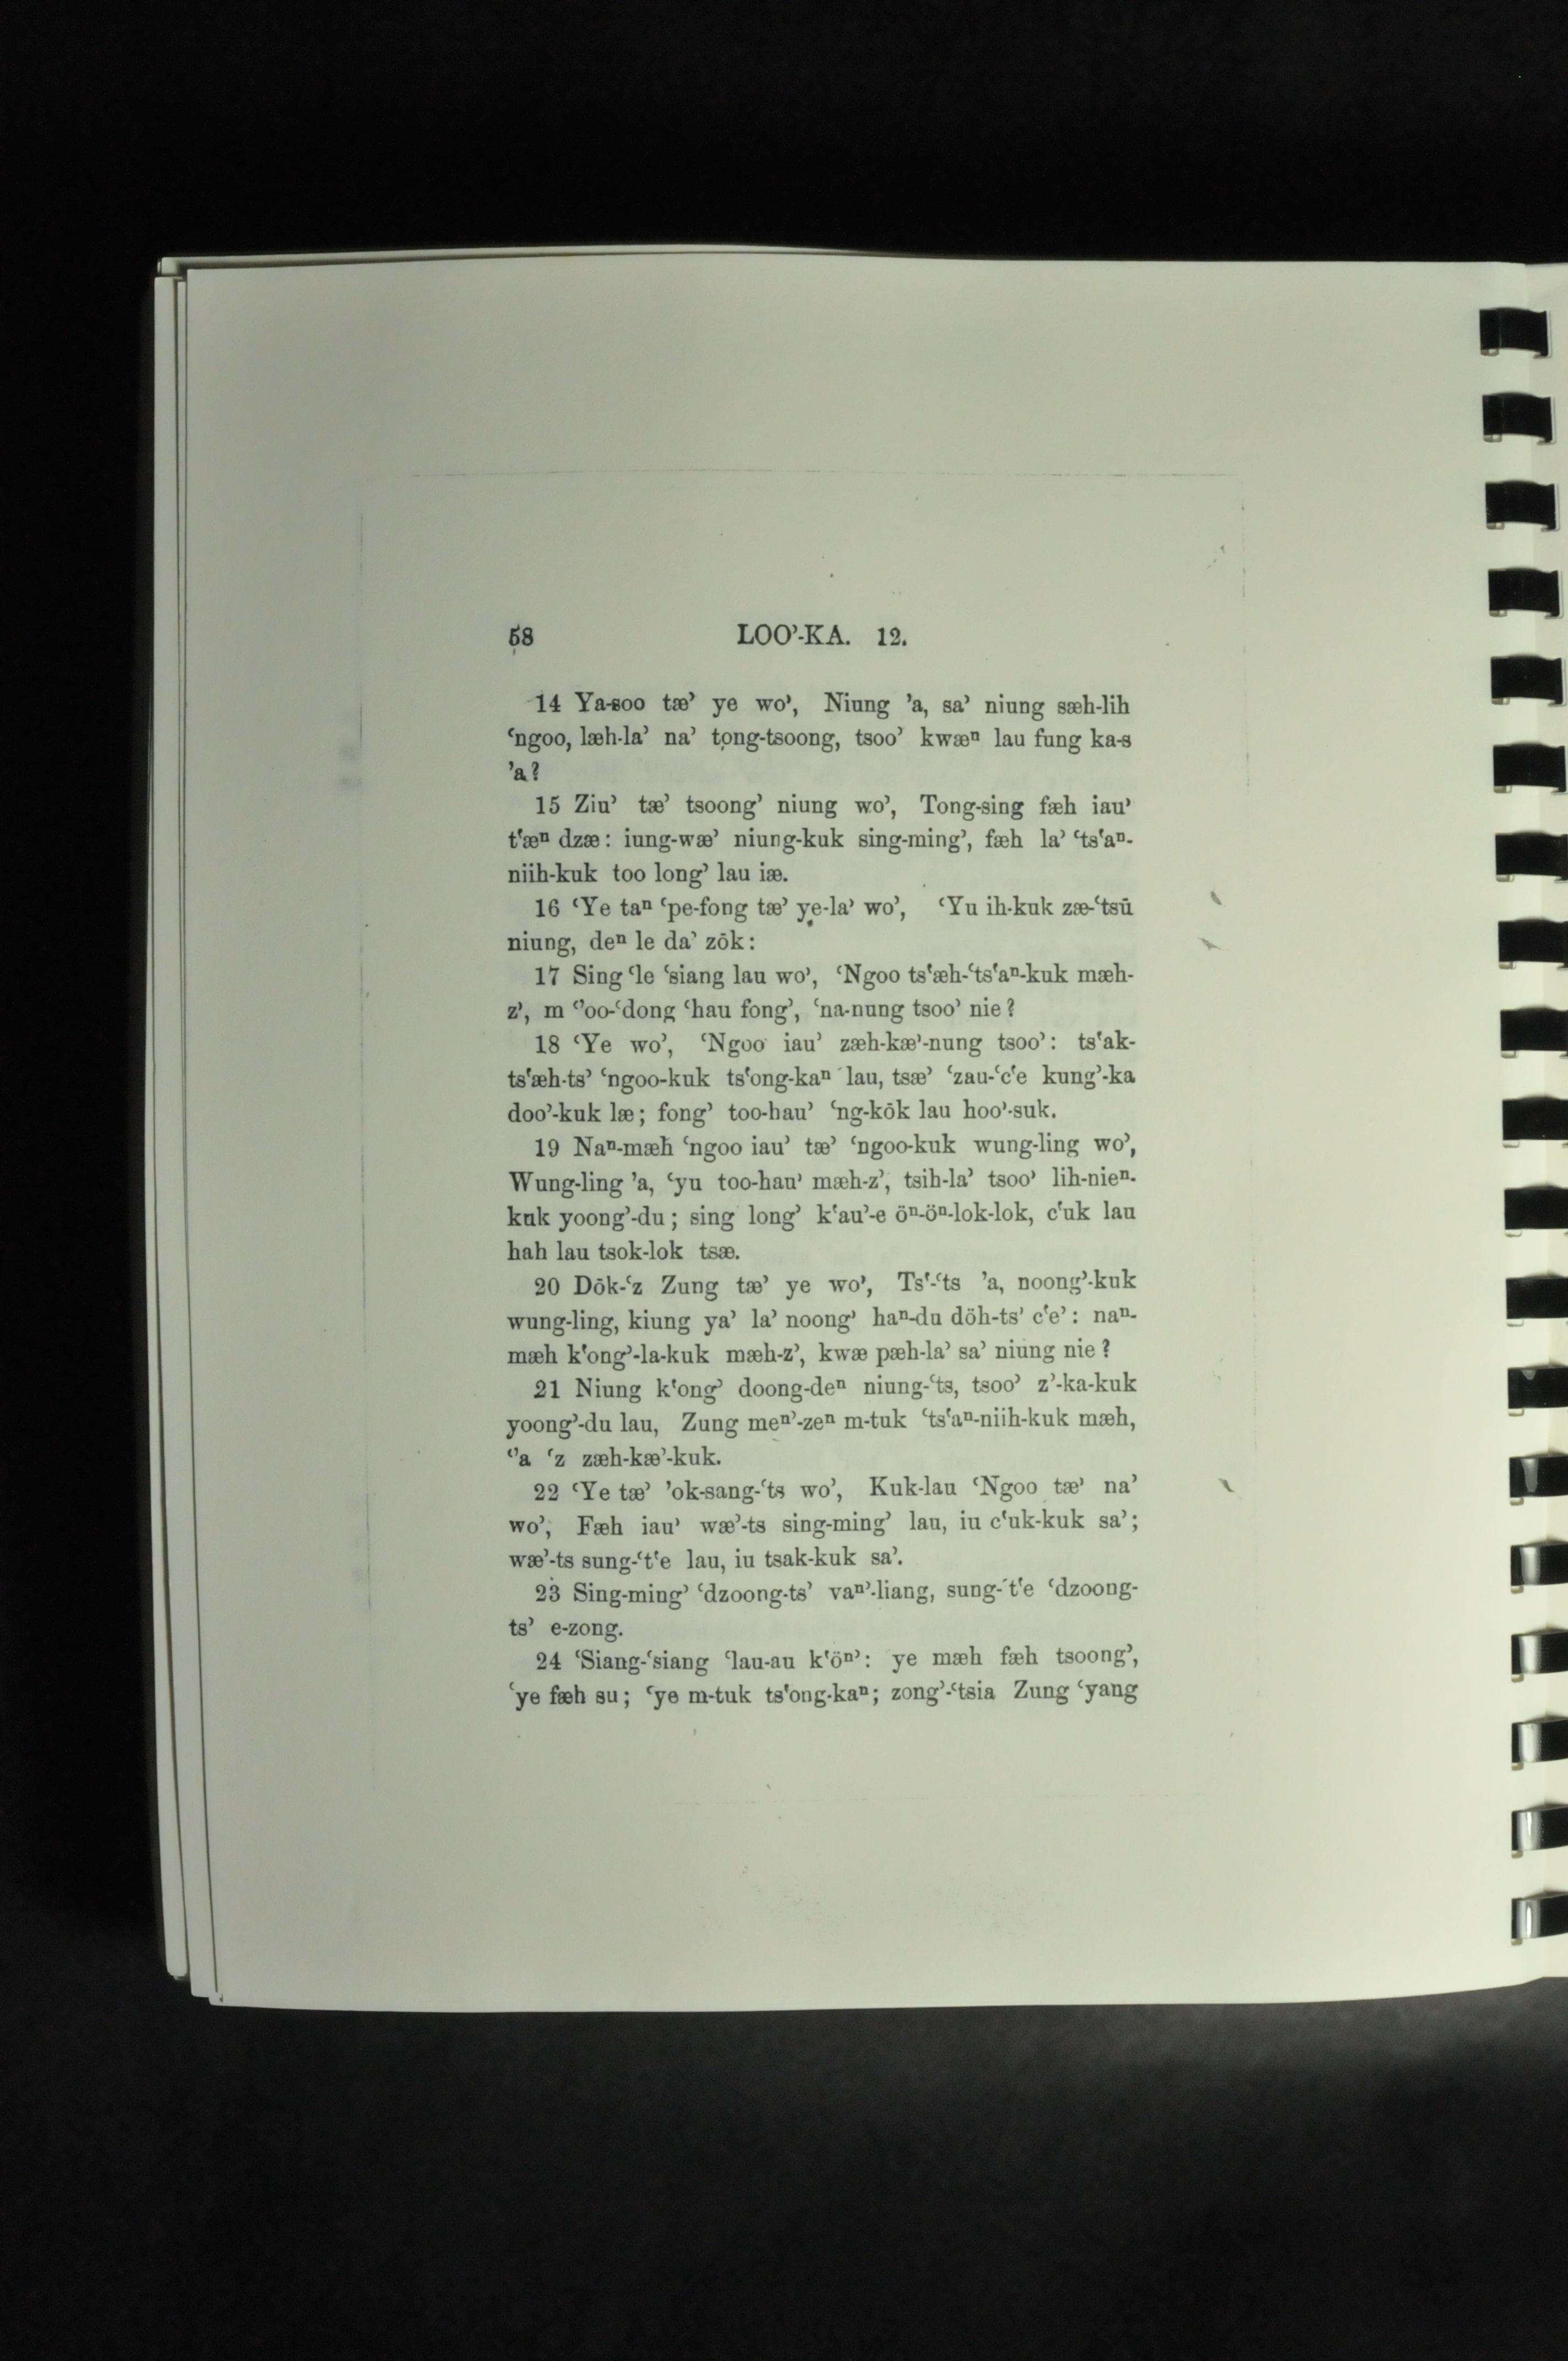 58 LOO’-KA. 12.
14 Ya-soo tæ’ ye wo’, Niung ’a, sa’ niung sæh-lih
‘ngoo, læh-la’ na’ tong-tsoong, tsoo’ kwæⁿ lau fung ka-s
’a?
15 Ziu’ tæ’ tsoong’ niung wo’, Tong-sing fæh iau’
t‘æⁿ dzæ: iung-wæ’ niung-kuk sing-ming’, fæh la’ ‘ts‘aⁿ-
niih-kuk too long’ lau iæ.
16 ‘Ye taⁿ ‘pe-fong tæ’ ye-la’ wo’, ‘Yu ih-kuk zæ-‘tsū
niung, deⁿ le da’ zōk:
17 Sing ‘le ‘siang lau wo’, ‘Ngoo ts‘æh-‘ts‘aⁿ-kuk mæh-
z’, m ‘’oo-‘dong ‘hau fong’, ‘na-nung tsoo’ nie?
18 ‘Ye wo’, ‘Ngoo iau’ zæh-kæ’-nung tsoo’: ts‘ak-
ts‘æh-ts’ ‘ngoo-kuk ts‘ong-kaⁿ lau, tsæ’ ‘zau-‘c‘e kung’-ka
doo’-kuk læ; fong’ too-hau’ ‘ng-kōk lau hoo’-suk.
19 Naⁿ-mæh ‘ngoo iau’ tæ’ ‘ngoo-kuk wung-ling wo’,
Wung-ling ’a, ‘yu too-hau’ mæh-z’, tsih-la’ tsoo’ lih-nieⁿ-
kuk yoong’-du; sing long’ k‘au’-e öⁿ-öⁿ-lok-lok, c‘uk lau
hah lau tsok-lok tsæ.
20 Dōk-‘z Zung tæ’ ye wo’, Ts‘-‘ts ’a, noong’-kuk
wung-ling, kiung ya’ la’ noong’ haⁿ-du döh-ts’ c‘e’: naⁿ-
mæh k‘ong’-la-kuk mæh-z’, kwæ pæh-la’ sa’ niung nie?
21 Niung k‘ong’ doong-deⁿ niung-‘ts, tsoo’ z’-ka-kuk
yoong’-du lau, Zung meⁿ’-zeⁿ m-tuk ‘ts‘aⁿ-niih-kuk mæh,
‘’a ‘z zæh-kæ’-kuk.
22 ‘Ye tæ’ ’ok-sang-‘ts wo’, Kuk-lau ‘Ngoo tæ’ na’
wo’, Fæh iau’ wæ’-ts sing-ming’ lau, iu c‘uk-kuk sa’;
wæ’-ts sung-‘t‘e lau, iu tsak-kuk sa’.
23 Sing-ming’ ‘dzoong-ts’ vaⁿ’-liang, sung-‘t‘e ‘dzoong-
ts’ e-zong.
24 ‘Siang-‘siang ‘lau-au k‘öⁿ’: ye mæh fæh tsoong’,
‘ye fæh su; ‘ye m-tuk ts‘ong-kaⁿ; zong’-‘tsia Zung ‘yang